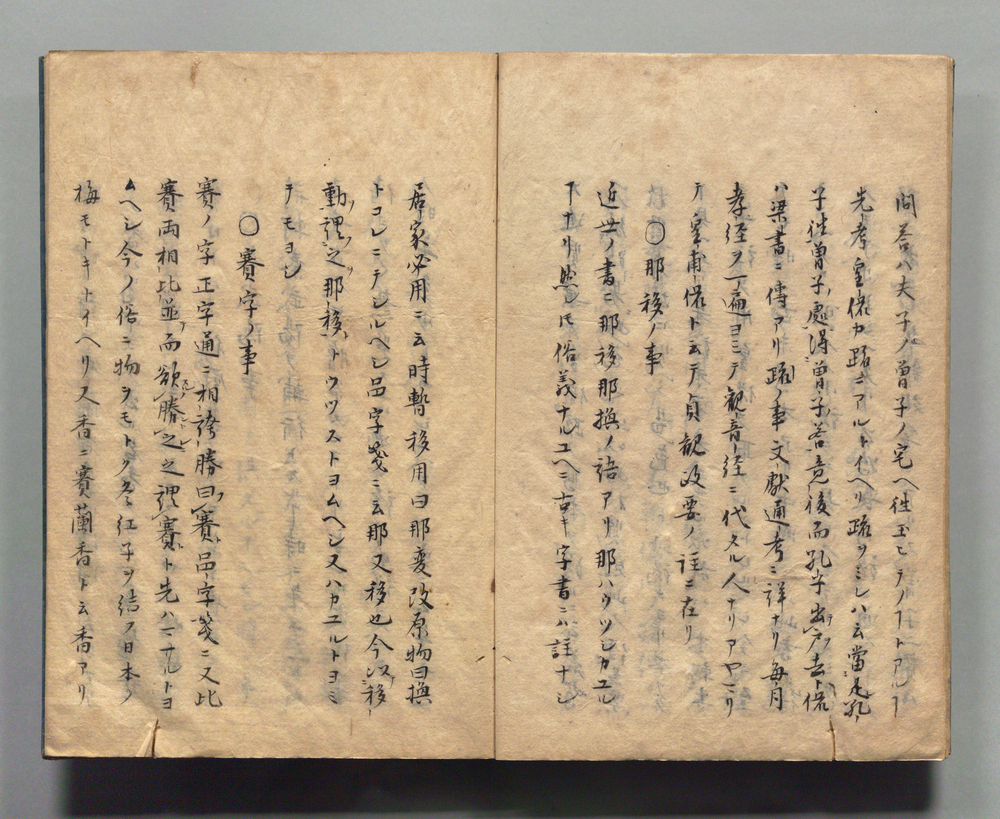 問答ハ夫子ノ曽子ノ宅ヘ往玉ヒテノヿトアルヿ
先孝皇侃カ踈ニアルトイヘリ踈ヲミレハ云當是孔
子往曽子處得曽子答竟後而孔子出戸去ト侃
ハ梁書ニ傳アリ踈ノ事文獻通考ニ詳ナリ毎月
孝経ヲ一遍ヨミテ觀音経ニ代タル人ナリアヤマリ
テ皇甫侃ト云テ貞觀政要ノ註ニ在リ
○那移ノ事
近世ノ書ニ那移那換ノ語アリ那ハウツシカユル
ヿナリ然レモ俗義ナルユヘニ古キ字書ニハ註ナシ
居家必用ニ云時暫移用曰那変改原物曰換
トコレニテシルベシ品字箋ニ云那又移也今以移
動謂之那移トウツストヨムヘシ又ハカユルトヨミ
テモヨシ
○賽字ノ事
賽ノ字正字通ニ相誇勝曰賽品字箋ニ又比
賽両相比並而欲勝之之謂賽ト先ハマサルトヨ
ムヘシ今ノ俗ニ物ヲモトク冬紅子ヲ結フ日本ノ
梅モトキトイヘリ又香ニ賽蘭香ト云香アリ